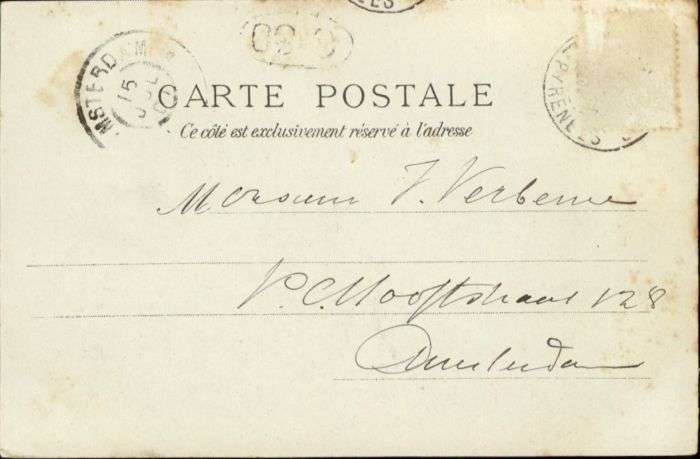 AMSTERDAM
15
PYRÉNÉES
CARTE POSTALE
Ce côté est exclusivement réservé à l'adresse
Monsieur
P.C. Hooftstraat 128
Amsterdam